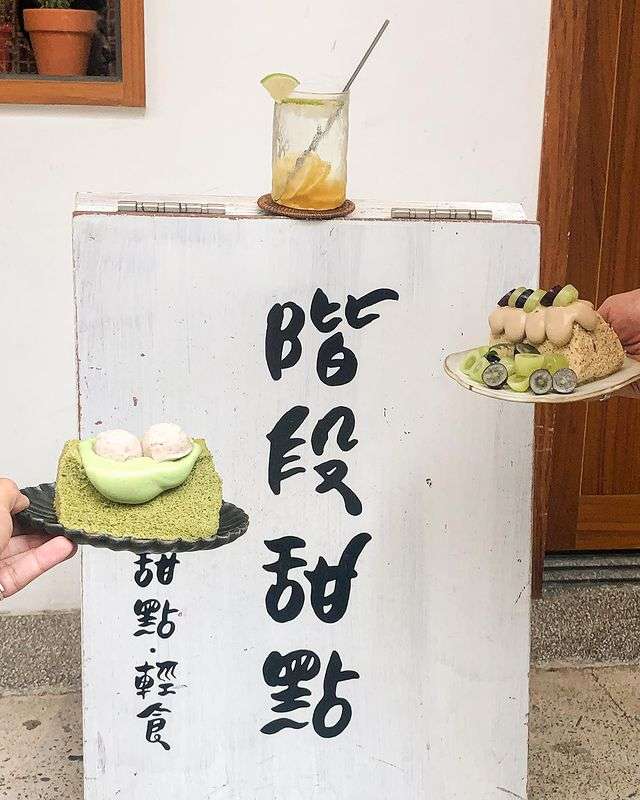 階段甜點
甜點·輕食